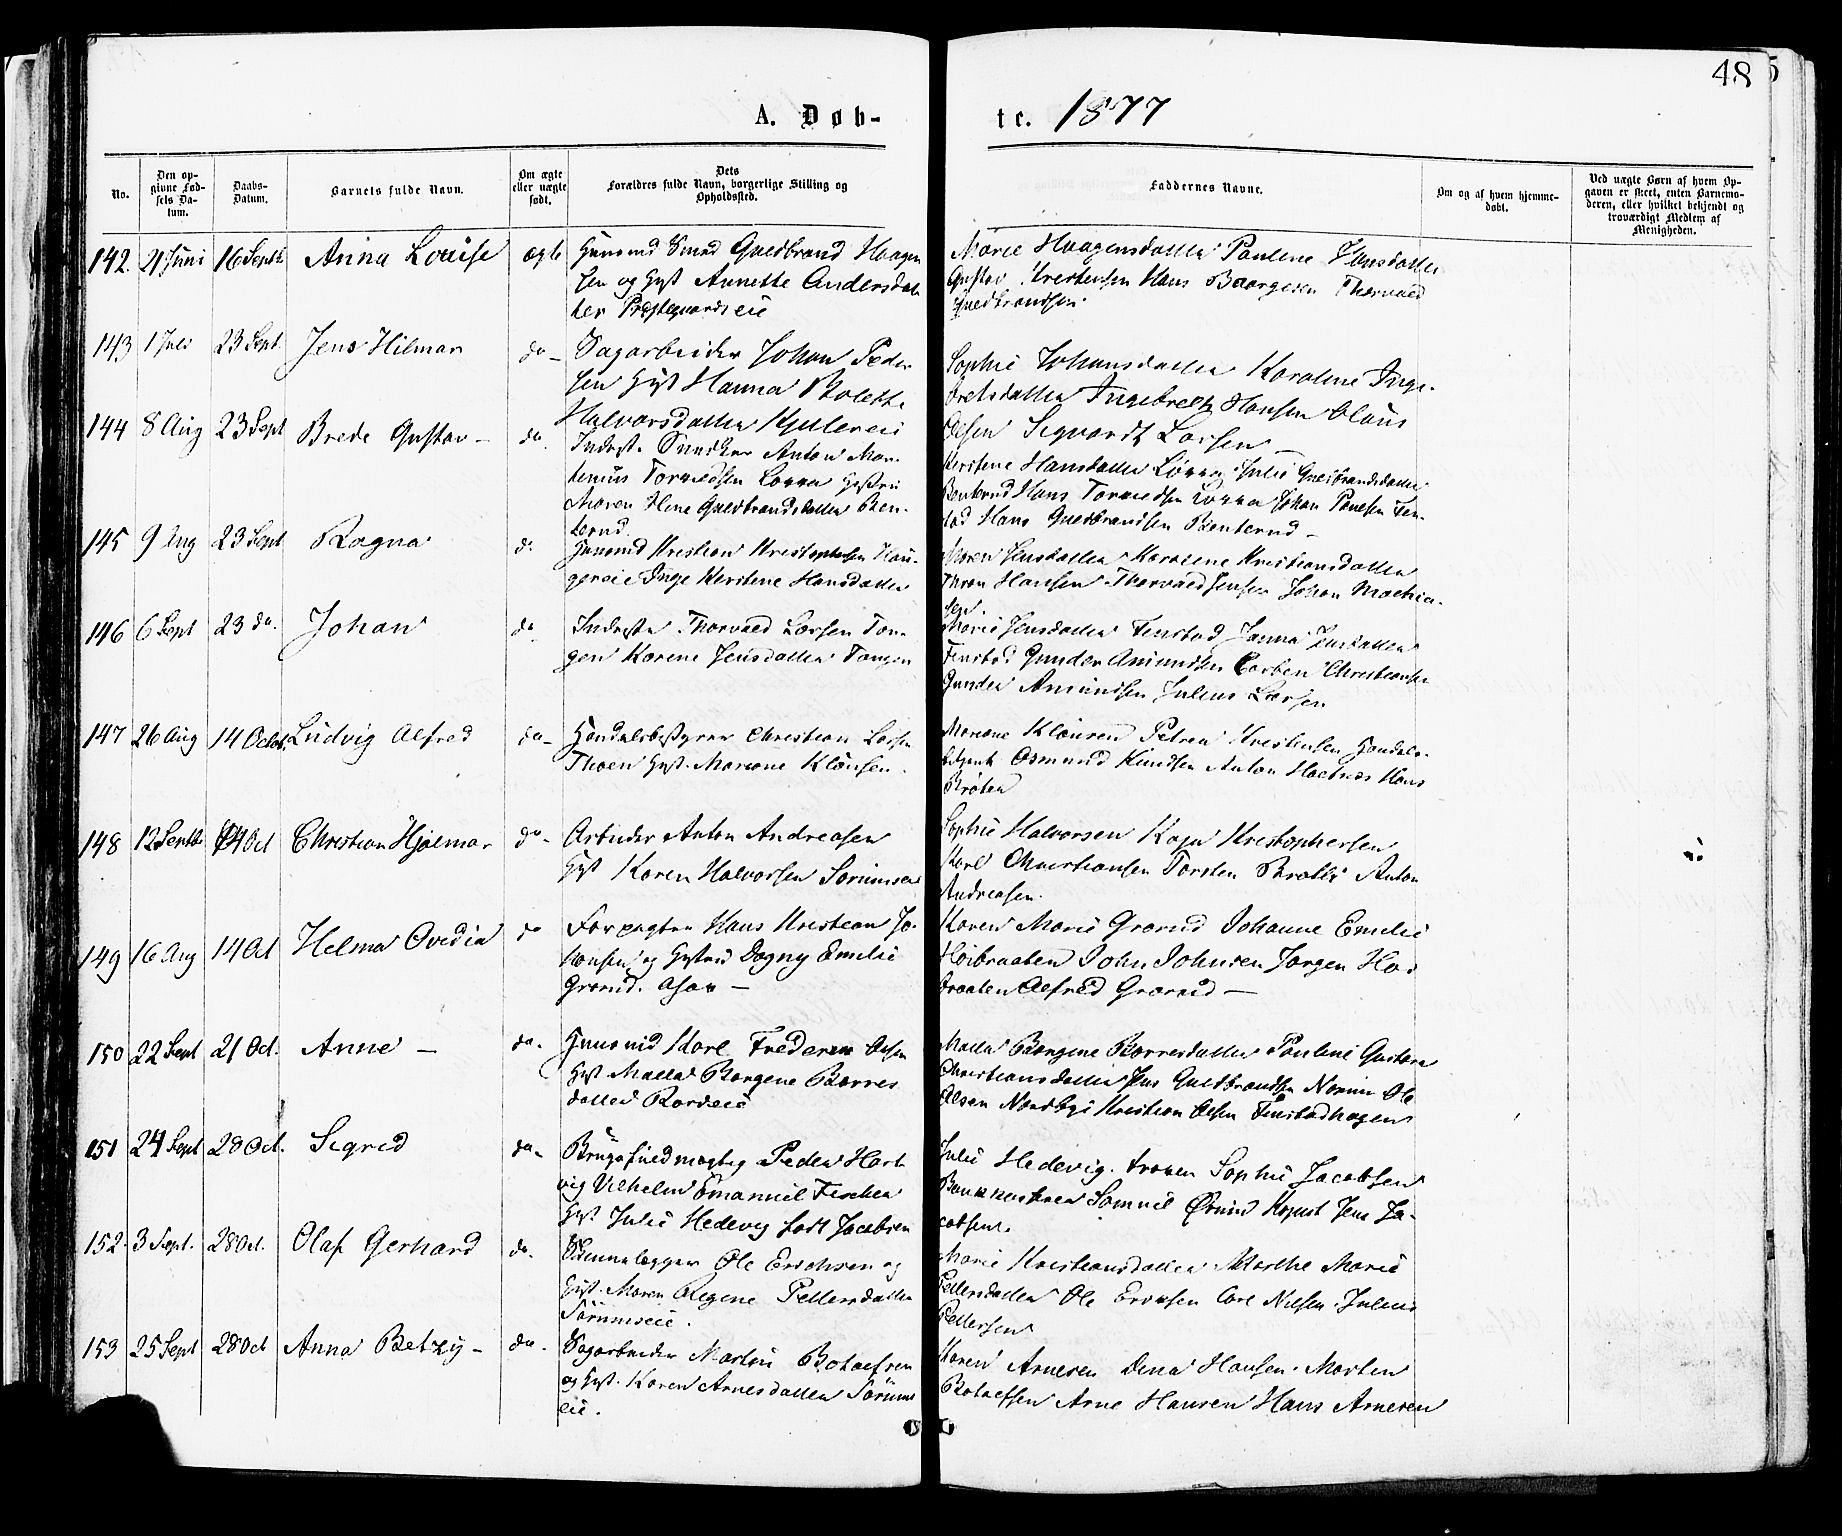 48
A. Døb-
te. 1877
No.
Den op-
givne Fød-
sels Da-
tum.
Daabs-
Datum.
Barnets fulde Navn.
Om ægte
eller uægte
født.
Dets
Forældres fulde Navn, borgerlige Stilling og
Opholdssted.
Faddernes Navne.
Om og af hvem hjemme-
døbt.
Ved uægte Børn af hvem Op-
gaven er skeet, enten Barnemo-
deren, eller hvilket bekjendt og
troværdigt Medlem af
Menigheden.
142. 21 Juni 16 Septb Anna Louise ægte
Huusmd Smed Gulbrand Haagen
sen og Hust Annette Andersdat
ter Præstegaardseie
Marie Haagensdatter Pauline Hansdatter
Gustav Kristensen Hans Baargesen Thorvald
Gulbrandsen
143 1 Juli 23 Sept. Jens Hilmar do
Sagarbeider Johan Peder
sen Hust Hanna Bolette
Halvorsdatter Kjellereie
Sophie Johansdatter Karoline Inge-
bretsdatter Ingebregt Hansen Olaus
Olsen Sigvardt Larsen
144 8 Aug 23 Sept Brede Gustav do.
Inderst. Snedker Anton Mar-
tinius Torvaldsen Løkka Hustru
Maren Helene Gulbrandsdatter Ben-
terud.
Kerstine Hansdatter Løkka Julie Gulbrandsdatter
Benterud Hans Torvaldsen Løkka Johan Paulsen Fen-
stad Hans Gulbrandsen Benterud
145 9 Aug 23 Sept Ragna do
Huusmd Kristian Kristophersen Hau-
gereie Inge Kerstine Hansdatter
Maren Jensdatter Karoline Kristiansdatter
Thron Hansen Thorvald Jensen Johan Mathia-
sen.
146 6 Sept 23 do. Johan do
Inderste Thorvald Larsen Tan-
gen Karene Jensdatter Tangen
Marie Jensdatter Fenstad Janna Jensdatter
Fenstad Gunder Amundsen Carben Christiansen
Gunder Amundsen Julius Larsen
147 26 Aug 14 Octob. Ludvig Alfred do
Handelsbestyrer Christian Larsen
Thoen Hust. Mariane Klausen.
Mariane Klausen Petrea Kristensen Handels-
betjent Osmund Knudsen Anton Holtnæs Hans
Bråten
148 12 Septb 14 Oct Christian Hjalmar do
Arbeider Anton Andreasen
Hust Karen Halvorsen Sørumseie
Sophie Halvorsen Kaja Kristophersen
Karl Christiansen Torsten Bratli Anton
Andreasen.
149 16 Aug 14 Oct Helma Ovedia do
Forpagter Hans Kristian Jo-
hansen og Hustru Dagny Emilie
Grørud. Asak
Karen Marie Grørud Johanne Emelie
Høibraaten John Johnsen Jørgen Høi-
braaten Alfred Grørud
150 22 Sept 21 Oct. Anne do.
Huusmd Karl Frederik Olsen
Hust Malla Bergine Børres
datter Bardseie
Malla Bergine Børresdatter Pauline Gustava
Christiansdatter Jens Gulbrandsen Nordli Ole
Olsen Nordbyi Kristian Olsen Fenstadhagen
151 24 Sept 28 Oct. Sigrid do.
Brugsfuldmægtig Peder Hart
vig Vilhelm Emanuel Fischer
Hust Julie Hedevig født Jacobsen
Julie Hedevig Sophie Jacobsen
Samuel August Jens Ja-
cobsen.
152. 3 Sept. 28 Oct. Olaf Gerhard do.
Skinnelægger Ole Erichsen og
Hust. Maren Regine Pettersdatter
Sørumseie.
Marie Kristiansdatter Marthe Marie
Pettersdatter Ole Eriksen Carl Nilsen Julius
Pettersen
153 25 Sept 28 Oct Anna Betzy do.
Sagarbeider Martin Botolfsen
og Hust. Karen Arnesdatter Sørums
eie.
Karen Arnesen Dina Hansen Morten
Botolfsen Arne Hansen Hans Arnesen